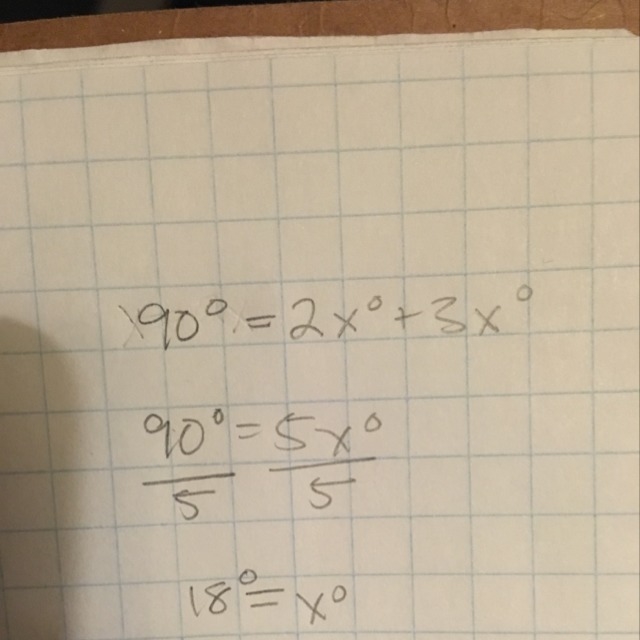 90° = 2x° + 3x°
90° = 5x°
5 5
18° = x°